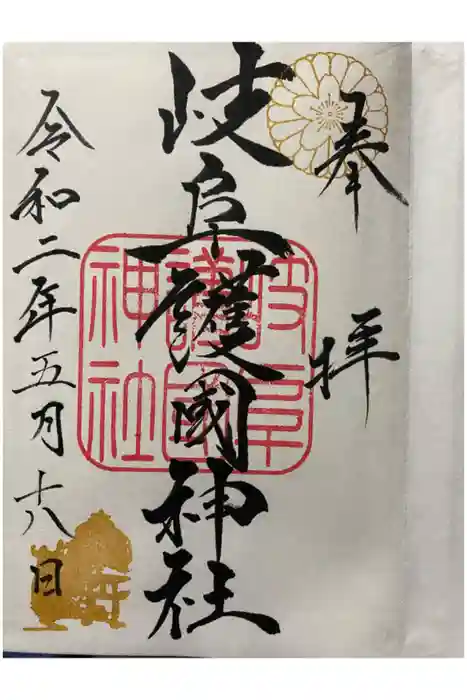 奉拝
岐阜護國神社
岐阜
護國
神社
令和二年五月十八日